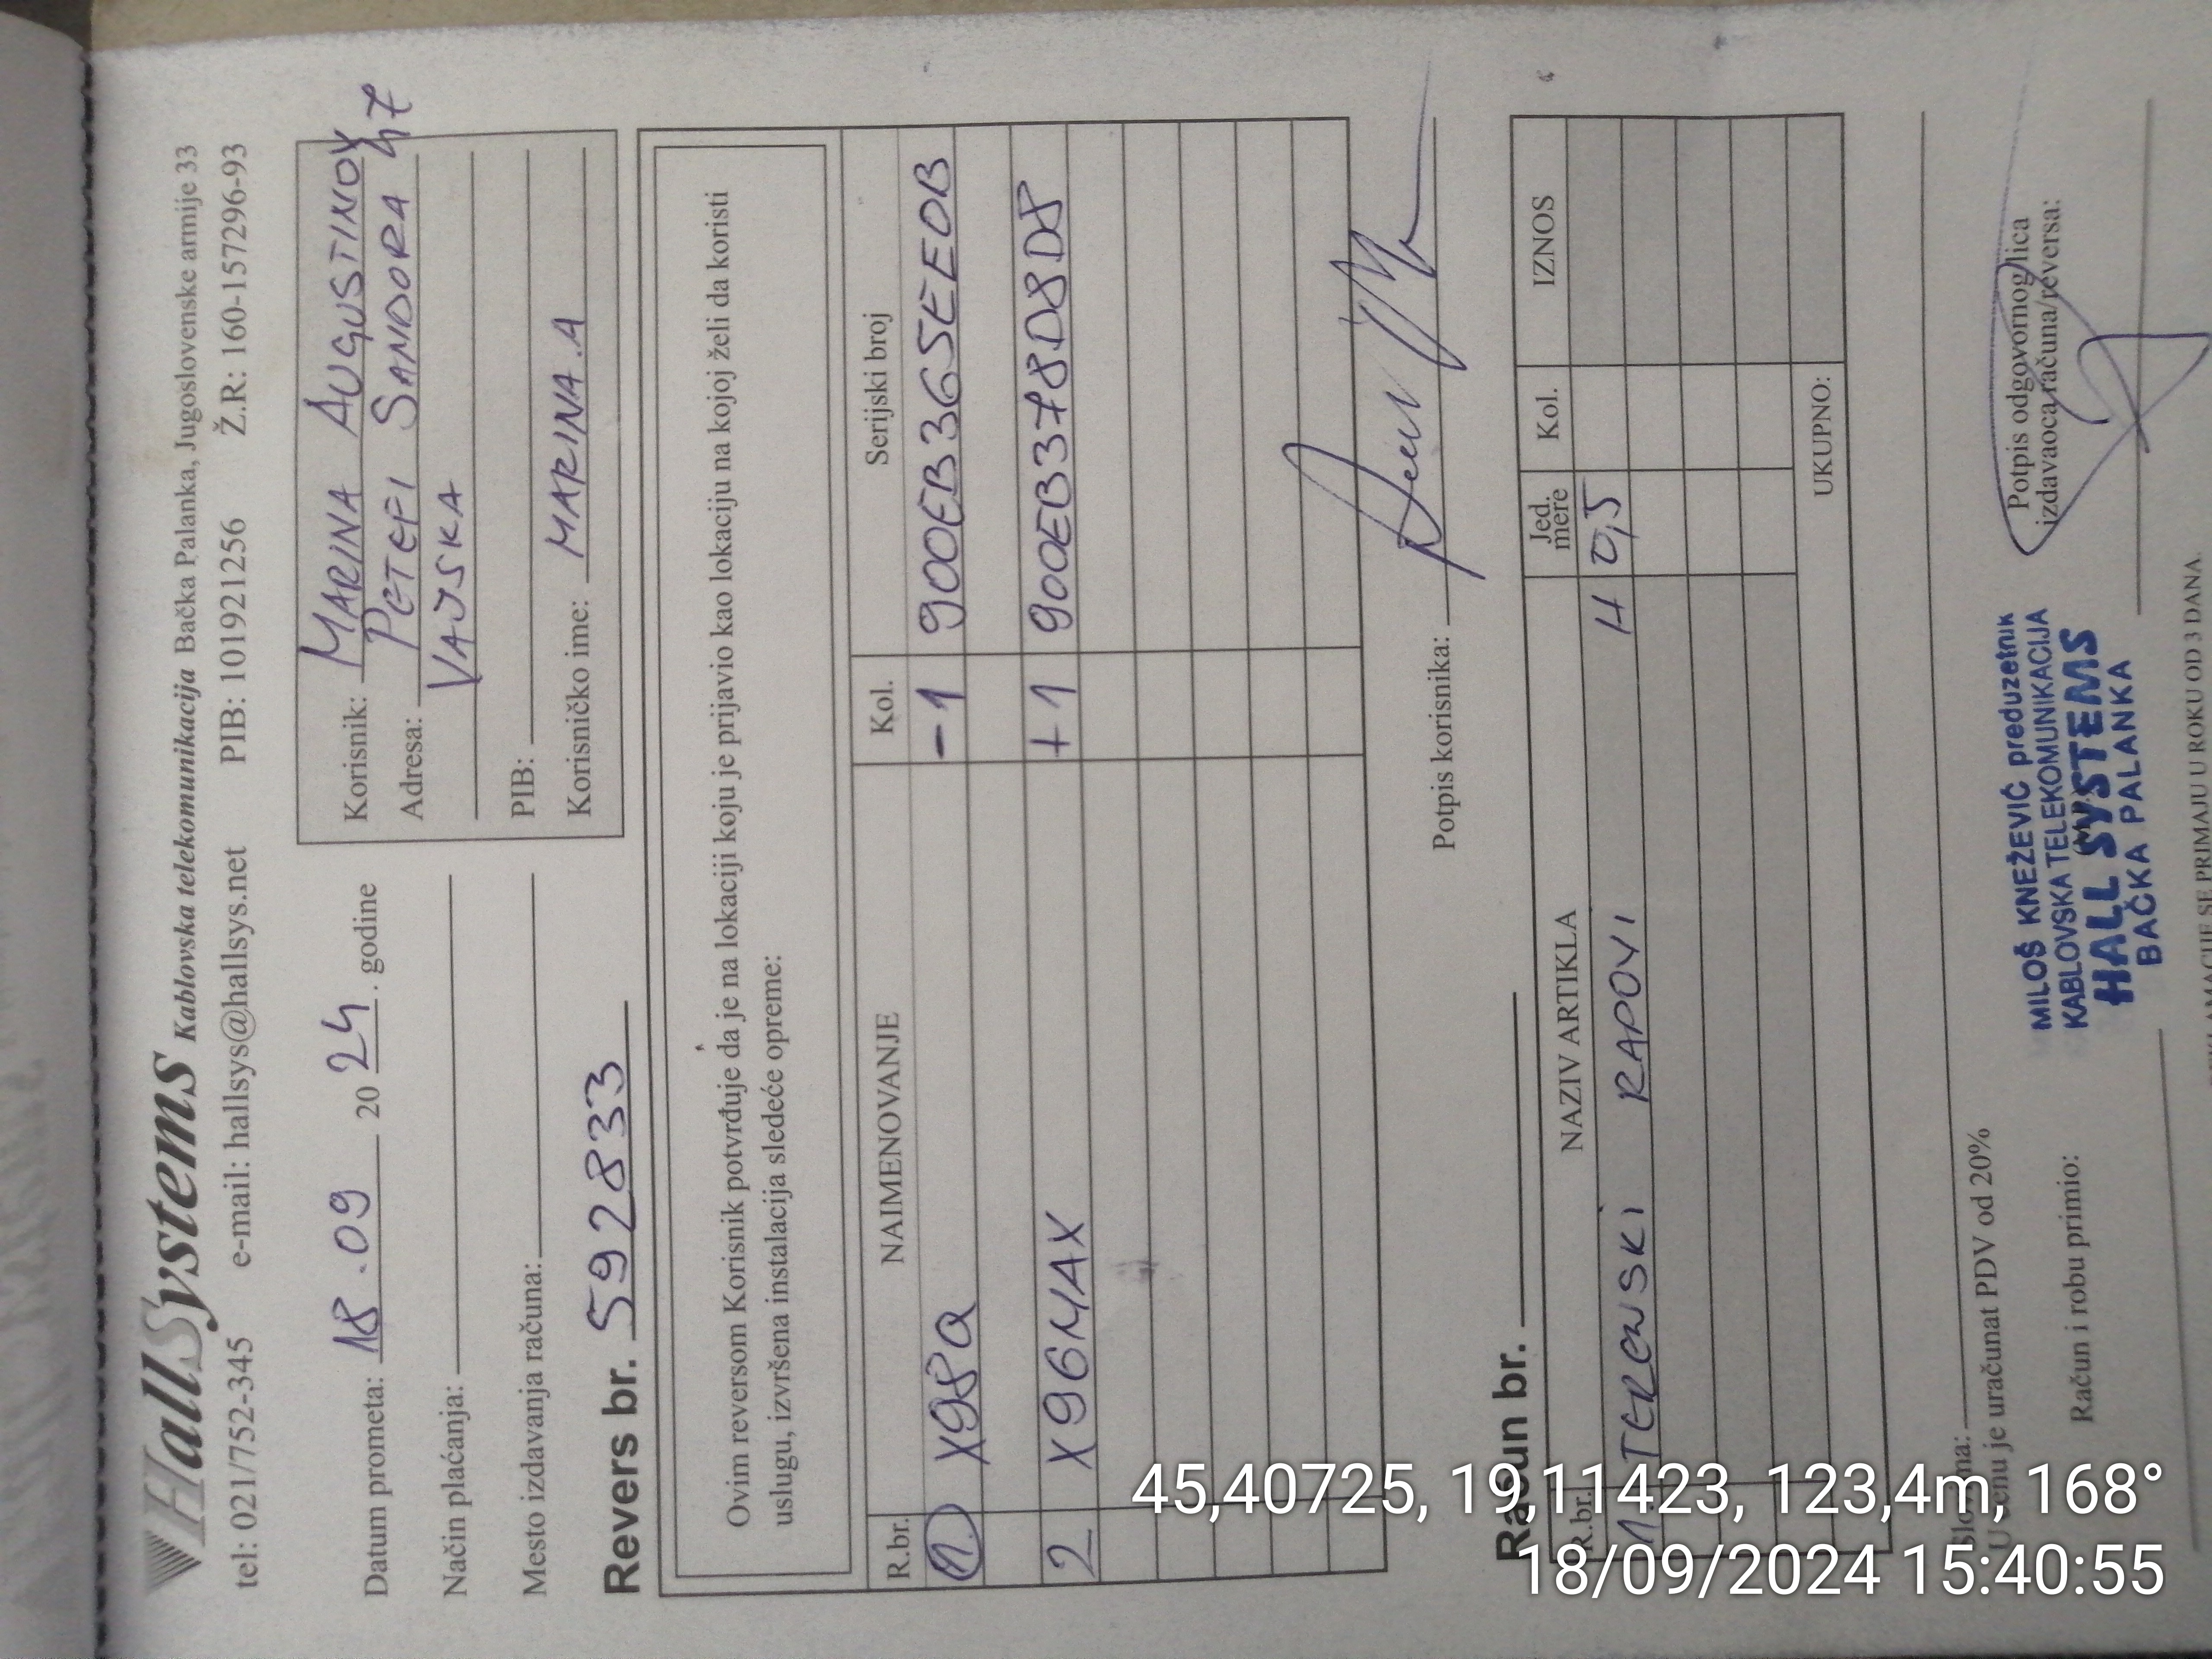 HallSystems Kablovska telekomunikacija Bačka Palanka, Jugoslovenske armije 33
tel: 021/752-345 e-mail: hallsys@hallsys.net PIB: 101921256 Ž.R: 160-157296-93
Datum prometa: 18.09 2024. godine
Način plaćanja:
Mesto izdavanja računa:
Korisnik: MARINA AUGUSTINOV
Adresa: PETEFI SANDORA 47
VAJSKA
PIB:
Korisničko ime: MARINA.A
Revers br. 592833
Ovim reversom Korisnik potvrđuje da je na lokaciji koju je prijavio kao lokaciju na kojoj želi da koristi
uslugu, izvršena instalacija sledeće opreme:
R.br. NAIMENOVANJE Kol. Serijski broj
1. X98Q -1 900EB365EE0B
2 X96MAX +1 900EB378D8D8
Potpis korisnika:
Račun br.
R.br. NAZIV ARTIKLA Jed. mere Kol. IZNOS
1 TERENSKI RADOVI H 0,5
UKUPNO:
U cenu je uračunat PDV od 20%
Račun i robu primio:
MILOŠ KNEŽEVIĆ preduzetnik
KABLOVSKA TELEKOMUNIKACIJA
HALL SYSTEMS
BAČKA PALANKA
Potpis odgovornog lica
izdavaoca računa/reversa:
SE PRIMAJU U ROKU OD 3 DANA
45,40725, 19,11423, 123,4m, 168°
18/09/2024 15:40:55